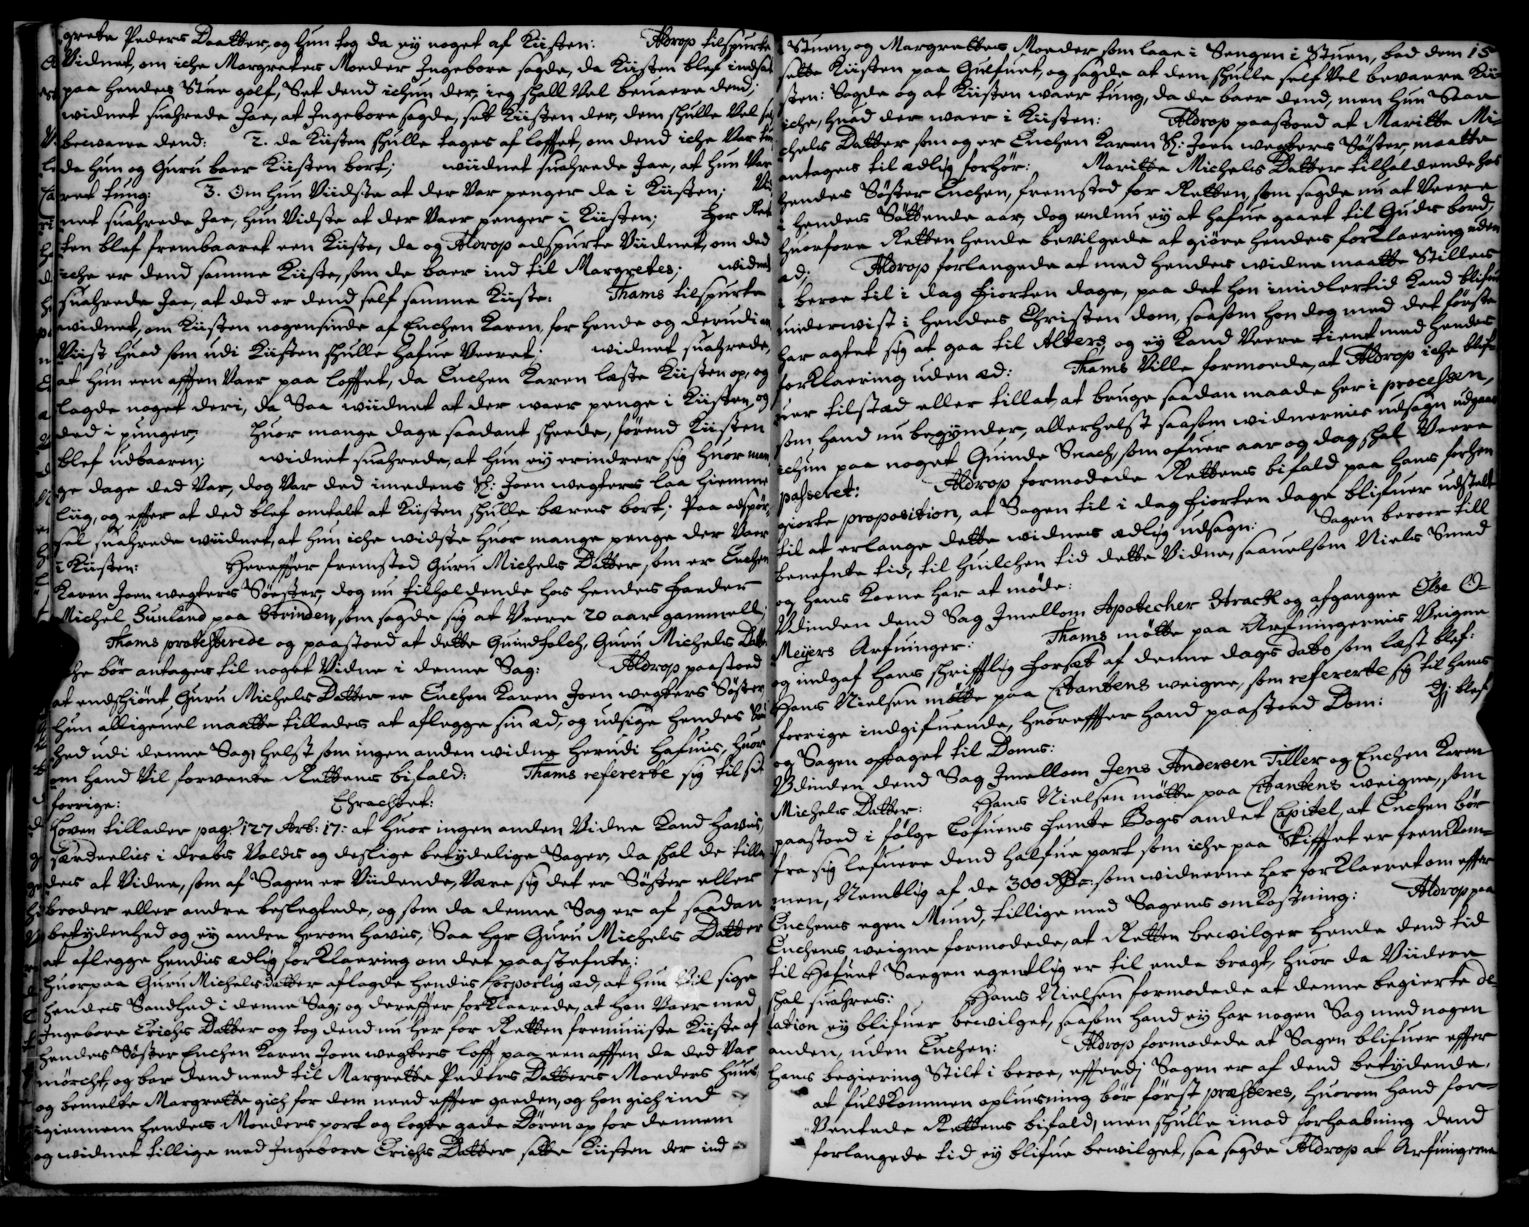 grete Peders Daatter, og hun tog da eÿ noget af Kiisten: Aldrop tilspurte
Vidnet, om iche Margretes Moeder Ingebore sagde, da Kiisten blef indsat
paa hendes Stue golf, Set dend ichun der, ieg skall Vel bevaere dend;
widnet suahrede Jae, at Ingebore sagde, set Kiisten der, dem skulle Vel
bevaere dend: 2. da Kiisten skulle tages af lofftet, om dend iche Var
da hun og Guru baer Kiisten bort; wiidnet suahrede Jae, at hun Var
ret tung: 3. Om hun Viidste at der Var penger da i Kiisten;
net suahrede Jae, hun Vidste at der Vaer penger i Kiisten; for Ret
ten blef frembaaret een Kiiste, da og Aldrop adspurte Viidnet, om ded
iche er dend samme Kiiste, som de baer ind til Margretes; widnet
suahrede Jae, at ded er dend self samme Kiiste: Thams tilspurte
widnet, om Kiisten nogensinde af Enchen Karen, for hende og derudi
Viist huad som udi Kiisten skulle hafue Veeret; widnet suahrede,
at hun een afften Vaer paa lofftet, da Enchen Karen laeste Kiisten op, og
lagde noget deri, da Saa wiidnet at der waer penge i Kiisten, og
ded i punger; huor mange dage saadant skeede, førend Kiisten
blef udbaaren; widnet suahrede, at hun eÿ erindrer sig huor man
ge dage ded Var, dog Var ded imedens Sl: Joen wegters laa hiemme
liig, og effter at ded blef omtalt at Kiisten skulle bæres bort; Paa adspør
sel, suahrede wiidnet, at hun iche widste huor mange penge der Vaer
i Kiisten: Hereffter fremstod Guru Michels Datter, som er Enchen
Karen Joen wegters Søester, dog nu tilholdende hos hendes Faeder
Michel Sunland paa Strinden, som sagde sig at Veere 20 aar gammell;
Thams protesterede og paastoed at dette Quindfolch, Guru Michels Datter
che bør antages til noget Vidne i denne Sag: Aldrop paastoed
at endskiønt Guru Michels Datter er Enchen Karen Joen wegters Søster
hun alligeuel maatte tillades at aflegge sin æd, og udsige hendes
hed udi denne Sag, helst som ingen anden widne herudi hafues, huor
om hand Vil forvente Rettens bifald: Thams refererte sig til sit
forrige: Eragtet:
Loven tillader pag: 127 Art: 17: at huor ingen anden Vidne Kand haves,
særdeelis i drabs Valds og deslige betÿdelige Sager, da skal de tilla
des at Vidne, som af Sagen er Viidende, Være sig det er Søster eller
broder eller andre beslegtede, og som da denne Sag er af saadan
betÿdenhed og eÿ andre herom havis, Saa har Guru Michels Datter
at aflegge hendis ædlig forklaering om det paastefnte:
huorpaa Guru Michelsdatter aflagde hendis Corporlig æd, at hun Vil sige
hendes Sandhed i denne Sag; og dereffter forklaerede, at hon Vaer med
Ingebore Erichs Datter og tog dend nu her for Retten fremviiste Kiiste af
hendes Søster Enchen Karen Joen wegters lofft paa een afften da ded Var
mörcht, og bar dend need til Margrette Peders Datters Moeders huus,
og bemelte Margrette gich for dem need effter gaeden, og hon gich ind
igiennem hendes Moeders port og logte gade Dören op for dennem
og widnet tillige med Ingebore Erichs Datter satte Kiisten der ind
Stuen, og Margrettes Moeder som laae i Sengen i Stuen, bad dem 15
sette Kiisten paa Gulfuet, og sagde at dem skulle self Vel bevaere Kii
sten: Sagde og at Kiisten waer tung, da de baer dend, men hun Saae
iche, huad der waer i Kiisten: Aldrop paastoed at Maritte Mi-
chels Datter som og er Enchen Karen Sl: Joen wegters Søster, maatte
antages til ædlig forhør: Maritte Michels Datter tilholdende hos
hendes Søster Enchen, fremstod for Retten, som sagde nu at Veere
i hendes Søttende aar, dog endnu eÿ at hafue gaaet til Guds bord,
huorfore Retten hende bevilgede at giøre hendes forklaering uden
æd; Aldrop forlangede at med hendes widne maatte Stilles
i beroe til i dag fiorten dage, paa det hon imidlertid kand blifue
underviist i hendes Christendom, saasom hon dog med det første
har agtet sig at gaa til Alters og eÿ kand Veere tient med hendes
forklaering uden æd: Thams Ville formoede, at Aldrop iche blif-
uer tilstad eller tillat at bruge saadan maade her i processen,
som hand nu begÿnder, allerhelst saasom widnernis udsagn udgaar
ichun paa noget Quinde Snach, som ofuer aar og dag skal Veere
passeret: Aldrop formodede Rettens bifald paa hans forhen
giorte proposition, at Sagen til i dag fiorten dage blifuer udstelt
til at erlange dette widnes ædlig udsagn: Sagen beroer till
benefnte tid, til huilchen tid dette Vidne, saavelsom Niels Smed
og hans Kone har at møde:
Udinden dend Sag Imellom Apotecher Strach og afgangne Else O-
Meÿers Arfuinger: Thams mötte paa Arfuingernis Veigne
og indgaf hans skrifftlig forsæt af denne dags dato som læst blef:
Hans Nielsen mötte paa Citantens weigne, som refererte sig til hans
forrige indgifuende, huoreffter hand paastoed Dom: Og blef
og Sagen optaget til Doms:
Udinden dend Sag Imellom Jens Andersen Tiller og Enchen Karen
Michels Datter: Hans Nielsen mötte paa Citantens weigne, som
paastoed i følge Lofuens femte Bogs andet Capitel, at Enchen bør
fra sig lefuere dend halfue part som iche paa Skifftet er fremkom-
men, Nemblig af de 300 rdr: som widnerne har forklaeret om effter
Enchens egen Mund, tillige med Sagens omkostning: Aldrop paa
Enchens weigne formodede, at Retten bewilger hende dend tid
til Hofuet Saegen egentlig er til ende bragt, huor da Viidere
skal suahres: Hans Nielsen formodede at denne begierte di
lation eÿ blifuer bewilget, saasom hand eÿ har nogen Sag med nogen
anden, uden Enchen: Aldrop formodede at Sagen blifuer effter
hans begiering Stilt i beroe, efftersi Sagen er af dend betÿdende,
at fuldkommen oplussning bør først præsteres, huorom hand for-
Ventede Rettens bifald, men skulle imod forhaabning dend
forlangede tid eÿ blifue bewilget, saa sagde Aldrop at Arfuingerne